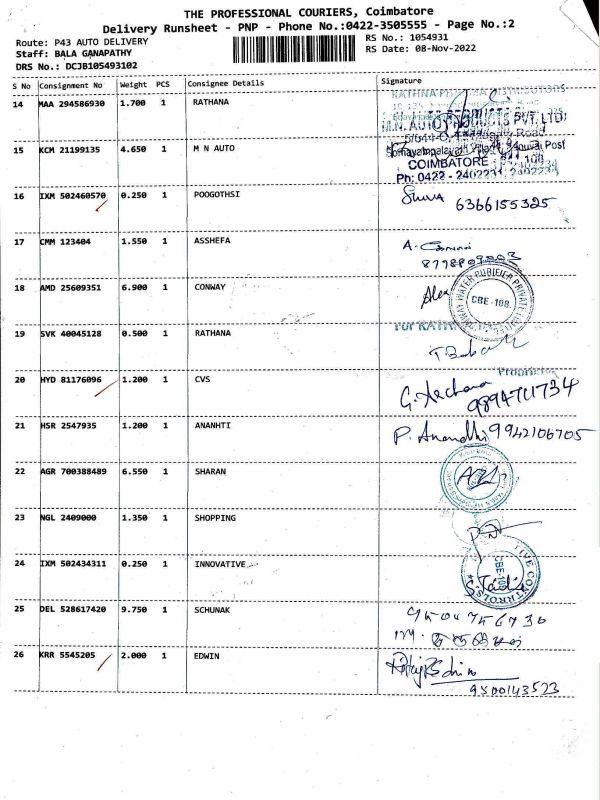 THE PROFESSIONAL COURIERS, Coimbatore
Delivery Runsheet - PNP - Phone No.:0422-3505555 - Page No.:2
Route: P43 AUTO DELIVERY
RS No.: 1054931
Staff: BALA GANAPATHY
RS Date: 08-Nov-2022
DRS No.: DCJB105493102
S No Consignment No Weight PCS Consignee Details Signature
14 MAA 294586930 1.700 1 RATHANA
15 KCM 21199135 4.650 1 M N AUTO
COIMBATORE
Ph: 0422 - 2402231
16 IXM 502460570 0.250 1 POOGOTHSI
Shiva 6366155325
17 CMM 123404 1.550 1 ASSHEFA
18 AMD 25609351 6.900 1 CONWAY
Alex
CBE-108
19 SVK 40045128 0.500 1 RATHANA
20 HYD 81176096 1.200 1 CVS
G. Archana
9894711734
21 HSR 2547935 1.200 1 ANANHTI
P. Anandhi 9942106705
22 AGR 700388489 6.550 1 SHARAN
23 NGL 2409000 1.350 1 SHOPPING
24 IXM 502434311 0.250 1 INNOVATIVE
25 DEL 528617420 9.750 1 SCHUNAK
9500756730
26 KRR 5545205 2.000 1 EDWIN
9500143523